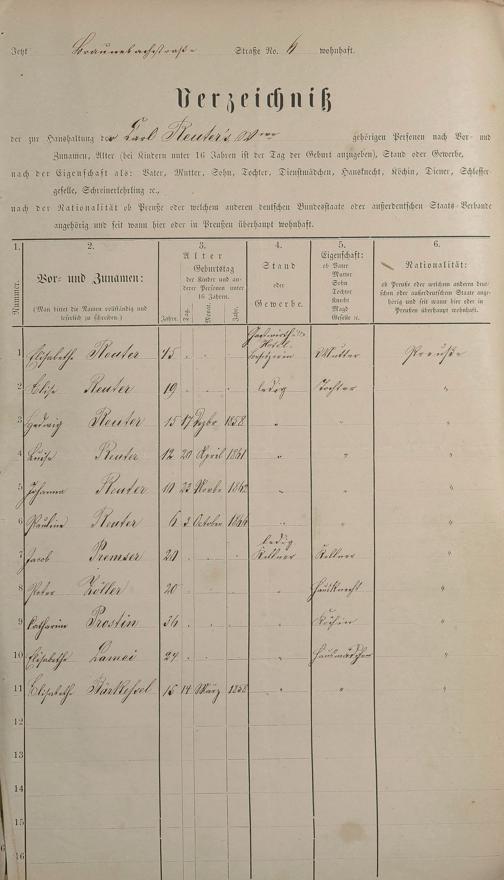 Jetzt Braunebachstraße Straße No. 4 wohnhaft.
Verzeichniß
der zur Haushaltung der Carl Reuter's Wwe gehörigen Personen nach Vor- und
Zunamen, Alter (bei Kindern unter 16 Jahren ist der Tag der Geburt anzugeben), Stand oder Gewerbe,
nach der Eigenschaft als: Vater, Mutter, Sohn, Tochter, Dienstmädchen, Hausknecht, Köchin, Diener, Schlosser-
geselle, Schreinerlehrling ꝛc.,
nach der Nationalität ob Preuße oder welchem anderen deutschen Bundesstaate oder außerdeutschen Staats-Verbande
angehörig und seit wann hier oder in Preußen überhaupt wohnhaft.
1. 2. 3. 4. 5. 6.
Nummer.
Vor- und Zunamen:
(Man bittet die Namen vollständig und
leserlich zu schreiben.)
Alter
Geburtstag
der Kinder und an-
derer Personen unter
16 Jahren.
Jahre. Tag. Monat. Jahr.
Stand
oder
Gewerbe.
Eigenschaft:
ob Vater
Mutter
Sohn
Tochter
Knecht
Magd
Geselle ꝛc.
Nationalität:
ob Preuße oder welchem anderen deut-
schen oder außerdeutschen Staate ange-
hörig und seit wann hier oder in
Preußen überhaupt wohnhaft.
1 Elisabetha Reuter 45 Mutter Preuße
2 Elise Reuter 19 ledig Tochter "
3 Hedwig Reuter 15 17 Dezbr. 1858 " " "
4 Luise Reuter 12 20 April 1861 " " "
5 Johanna Reuter 10 23 1862 " " "
6 Pauline Reuter 6 3. October 1866 " " "
7 Jacob Premser 20 ledig Kellner Kellner "
8 Peter Zöller 20 " Hausknecht "
9 Catharine Prostin 36 " Köchin "
10 Elisabetha Lamei 24 " Hausmädchen "
11 Elisabetha 15 14 März 1858 " " "
12
13
14
15
16